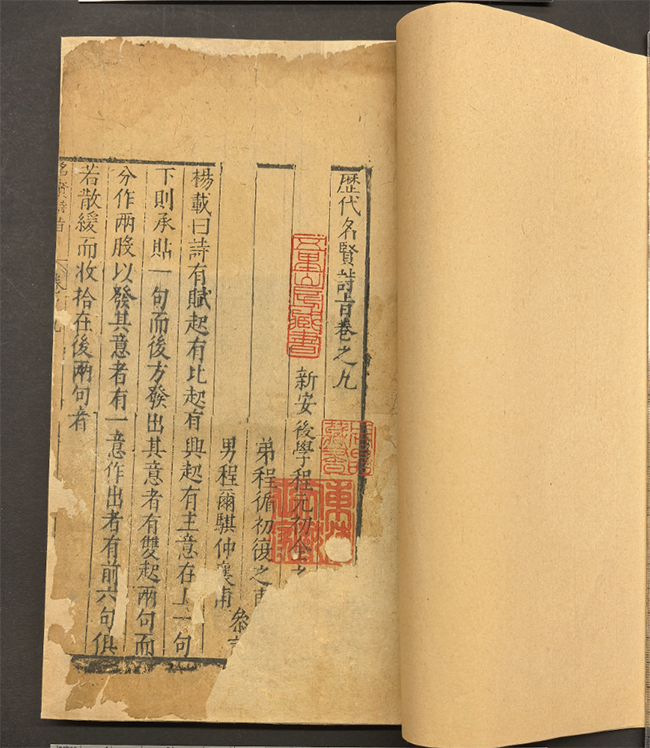 歷代名賢詩旨卷之九
新安後學程元初全之
弟程循初復之甫
男程爾騏仲襄甫
叅
楊載曰詩有賦起有比起有興起有主意在上一句
下則承貼一句而後方發出其意者有雙起兩句而
分作兩股以發其意者有一意作出者有前六句俱
若散緩而收拾在後兩句者
名賢詩旨
卷之九